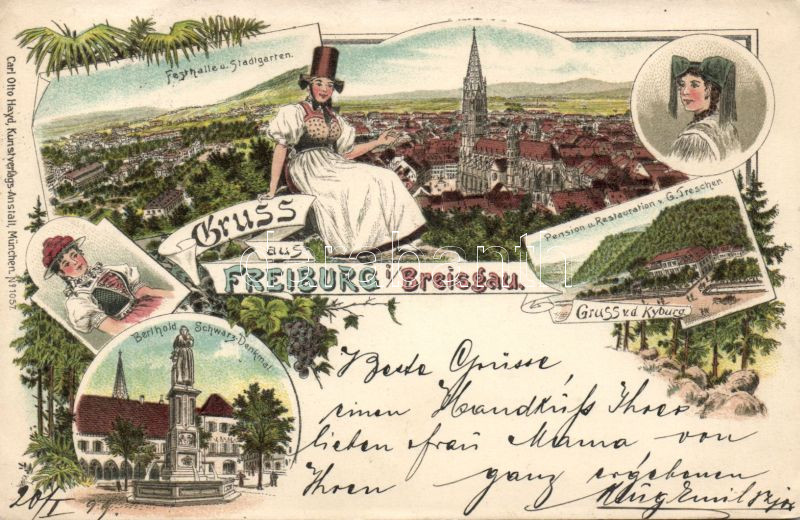 Carl Otto Hayd, Kunstverlags-Anstalt, München. No 1057.
Festhalle u. Stadtgarten.
Gruss
aus
FREIBURG i/Breisgau.
darabanth.com
Pension u. Restauration v. G. Trescher.
Gruss v. d. Kyburg
Berthold Schwarz-Denkmal
Beste Grüsse,
einen Handkuß Ihrer
lieben Frau Mama von
Ihrem ganz ergebenen
20/I
99.